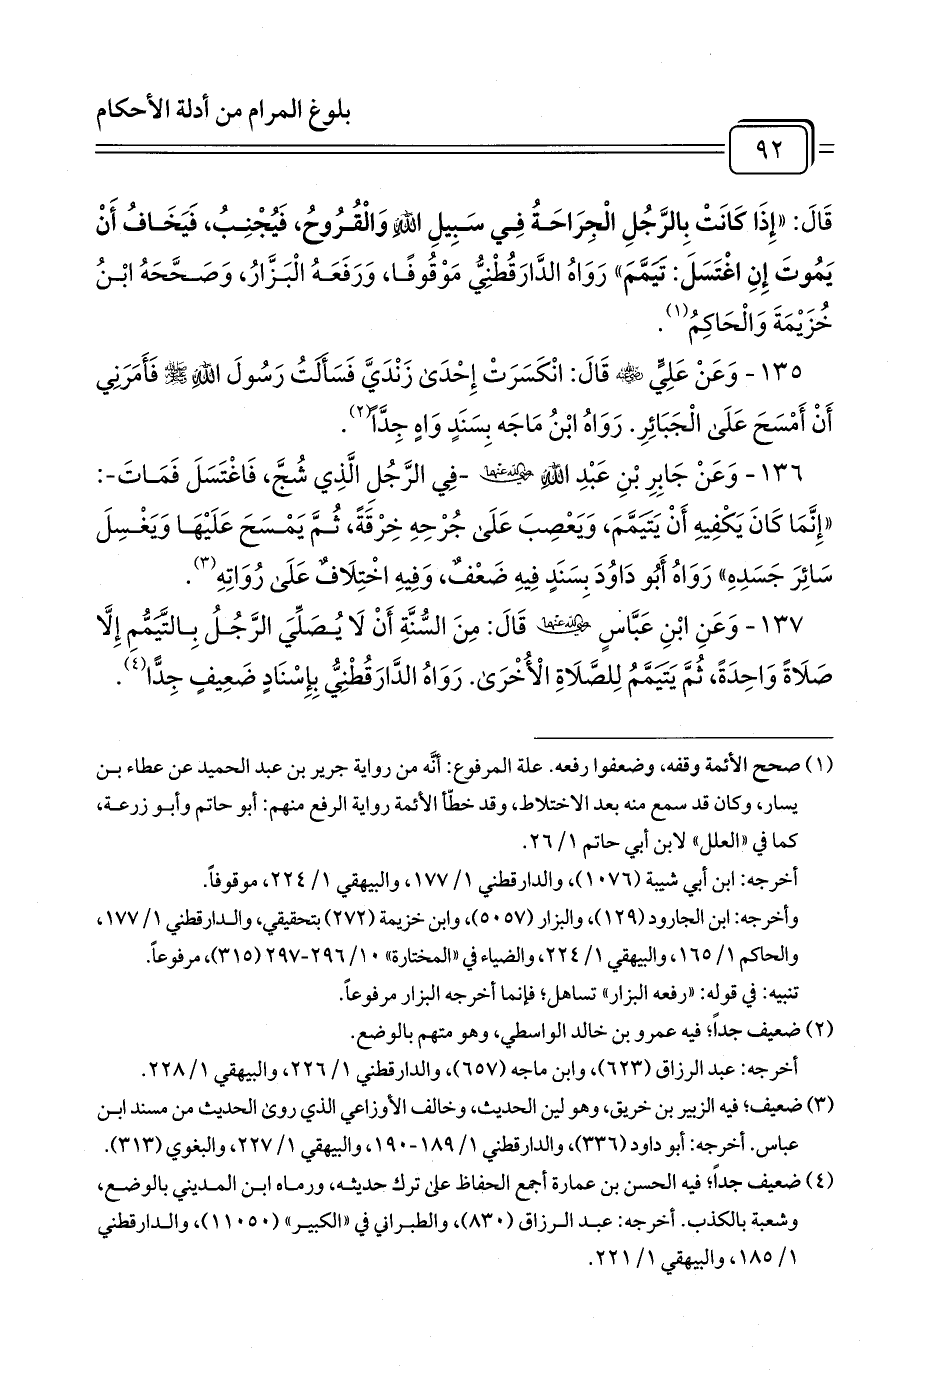 بلوغ المرام من أدلة الأحكام
٩٢
قَالَ: «إِذَا كَانَتْ بِالرَّجُلِ الْجِرَاحَةُ فِي سَبِيلِ اللهِ وَالْقُرُوحُ، فَيُجْنِبُ، فَيَخَافُ أَنْ
يَمُوتَ إِنِ اغْتَسَلَ: تَيَمَّمَ» رَوَاهُ الدَّارَقُطْنِيُّ مَوْقُوفًا، وَرَفَعَهُ الْبَزَّارُ، وَصَحَّحَهُ ابْنُ
خُزَيْمَةَ وَالْحَاكِمُ(١).
١٣٥- وَعَنْ عَلِيٍّ رضي الله عنه قَالَ: انْكَسَرَتْ إِحْدَى زَنْدَيَّ فَسَأَلَتُ رَسُولَ اللهِ ﷺ فَأَمَرَنِي
أَنْ أَمْسَحَ عَلَى الْجَبَائِرِ. رَوَاهُ ابْنُ مَاجَه بِسَنَدٍ وَاهٍ جِدًّا(٢).
١٣٦- وَعَنْ جَابِرِ بْنِ عَبْدِ اللهِ رضي الله عنهما -فِي الرَّجُلِ الَّذِي شُجَّ، فَاغْتَسَلَ فَمَاتَ-:
«إِنَّمَا كَانَ يَكْفِيهِ أَنْ يَتَيَمَّمَ، وَيَعْصِبَ عَلَى جُرْحِهِ خِرْقَةً، ثُمَّ يَمْسَحَ عَلَيْهَا وَيَغْسِلَ
سَائِرَ جَسَدِهِ» رَوَاهُ أَبُو دَاوُدَ بِسَنَدٍ فِيهِ ضَعْفٌ، وَفِيهِ اخْتِلَافٌ عَلَى رُوَاتِهِ(٣).
١٣٧- وَعَنِ ابْنِ عَبَّاسٍ رضي الله عنهما قَالَ: مِنَ السُّنَّةِ أَنْ لَا يُصَلِّيَ الرَّجُلُ بِالتَّيَمُّمِ إِلَّا
صَلَاةً وَاحِدَةً، ثُمَّ يَتَيَمَّمُ لِلصَّلَاةِ الْأُخْرَى. رَوَاهُ الدَّارَقُطْنِيُّ بِإِسْنَادٍ ضَعِيفٍ جِدًّا(٤).
(١) صحح الأئمة وقفه، وضعفوا رفعه. علة المرفوع: أنَّه من رواية جرير بن عبد الحميد عن عطاء بن
يسار، وكان قد سمع منه بعد الاختلاط، وقد خطّأ الأئمة رواية الرفع منهم: أبو حاتم وأبو زرعة،
كما في «العلل» لابن أبي حاتم ١/ ٢٦.
أخرجه: ابن أبي شيبة (١٠٧٦)، والدارقطني ١/ ١٧٧، والبيهقي ١/ ٢٢٤، موقوفاً.
وأخرجه: ابن الجارود (١٢٩)، والبزار (٥٠٥٧)، وابن خزيمة (٢٧٢) بتحقيقي، والدارقطني ١/ ١٧٧،
والحاكم ١/ ١٦٥، والبيهقي ١/ ٢٢٤، والضياء في «المختارة» ١٠/ ٢٩٦-٢٩٧ (٣١٥)، مرفوعاً.
تنبيه: في قوله: «رفعه البزار» تساهل؛ فإنما أخرجه البزار مرفوعاً.
(٢) ضعيف جداً؛ فيه عمرو بن خالد الواسطي، وهو متهم بالوضع.
أخرجه: عبد الرزاق (٦٢٣)، وابن ماجه (٦٥٧)، والدارقطني ١/ ٢٢٦، والبيهقي ١/ ٢٢٨.
(٣) ضعيف؛ فيه الزبير بن خريق، وهو لين الحديث، وخالف الأوزاعي الذي روى الحديث من مسند ابن
عباس. أخرجه: أبو داود (٣٣٦)، والدارقطني ١/ ١٨٩-١٩٠، والبيهقي ١/ ٢٢٧، والبغوي (٣١٣).
(٤) ضعيف جداً؛ فيه الحسن بن عمارة أجمع الحفاظ على ترك حديثه، ورماه ابن المديني بالوضع،
وشعبة بالكذب. أخرجه: عبد الرزاق (٨٣٠)، والطبراني في «الكبير» (١١٠٥٠)، والدارقطني
١/ ١٨٥، والبيهقي ١/ ٢٢١.